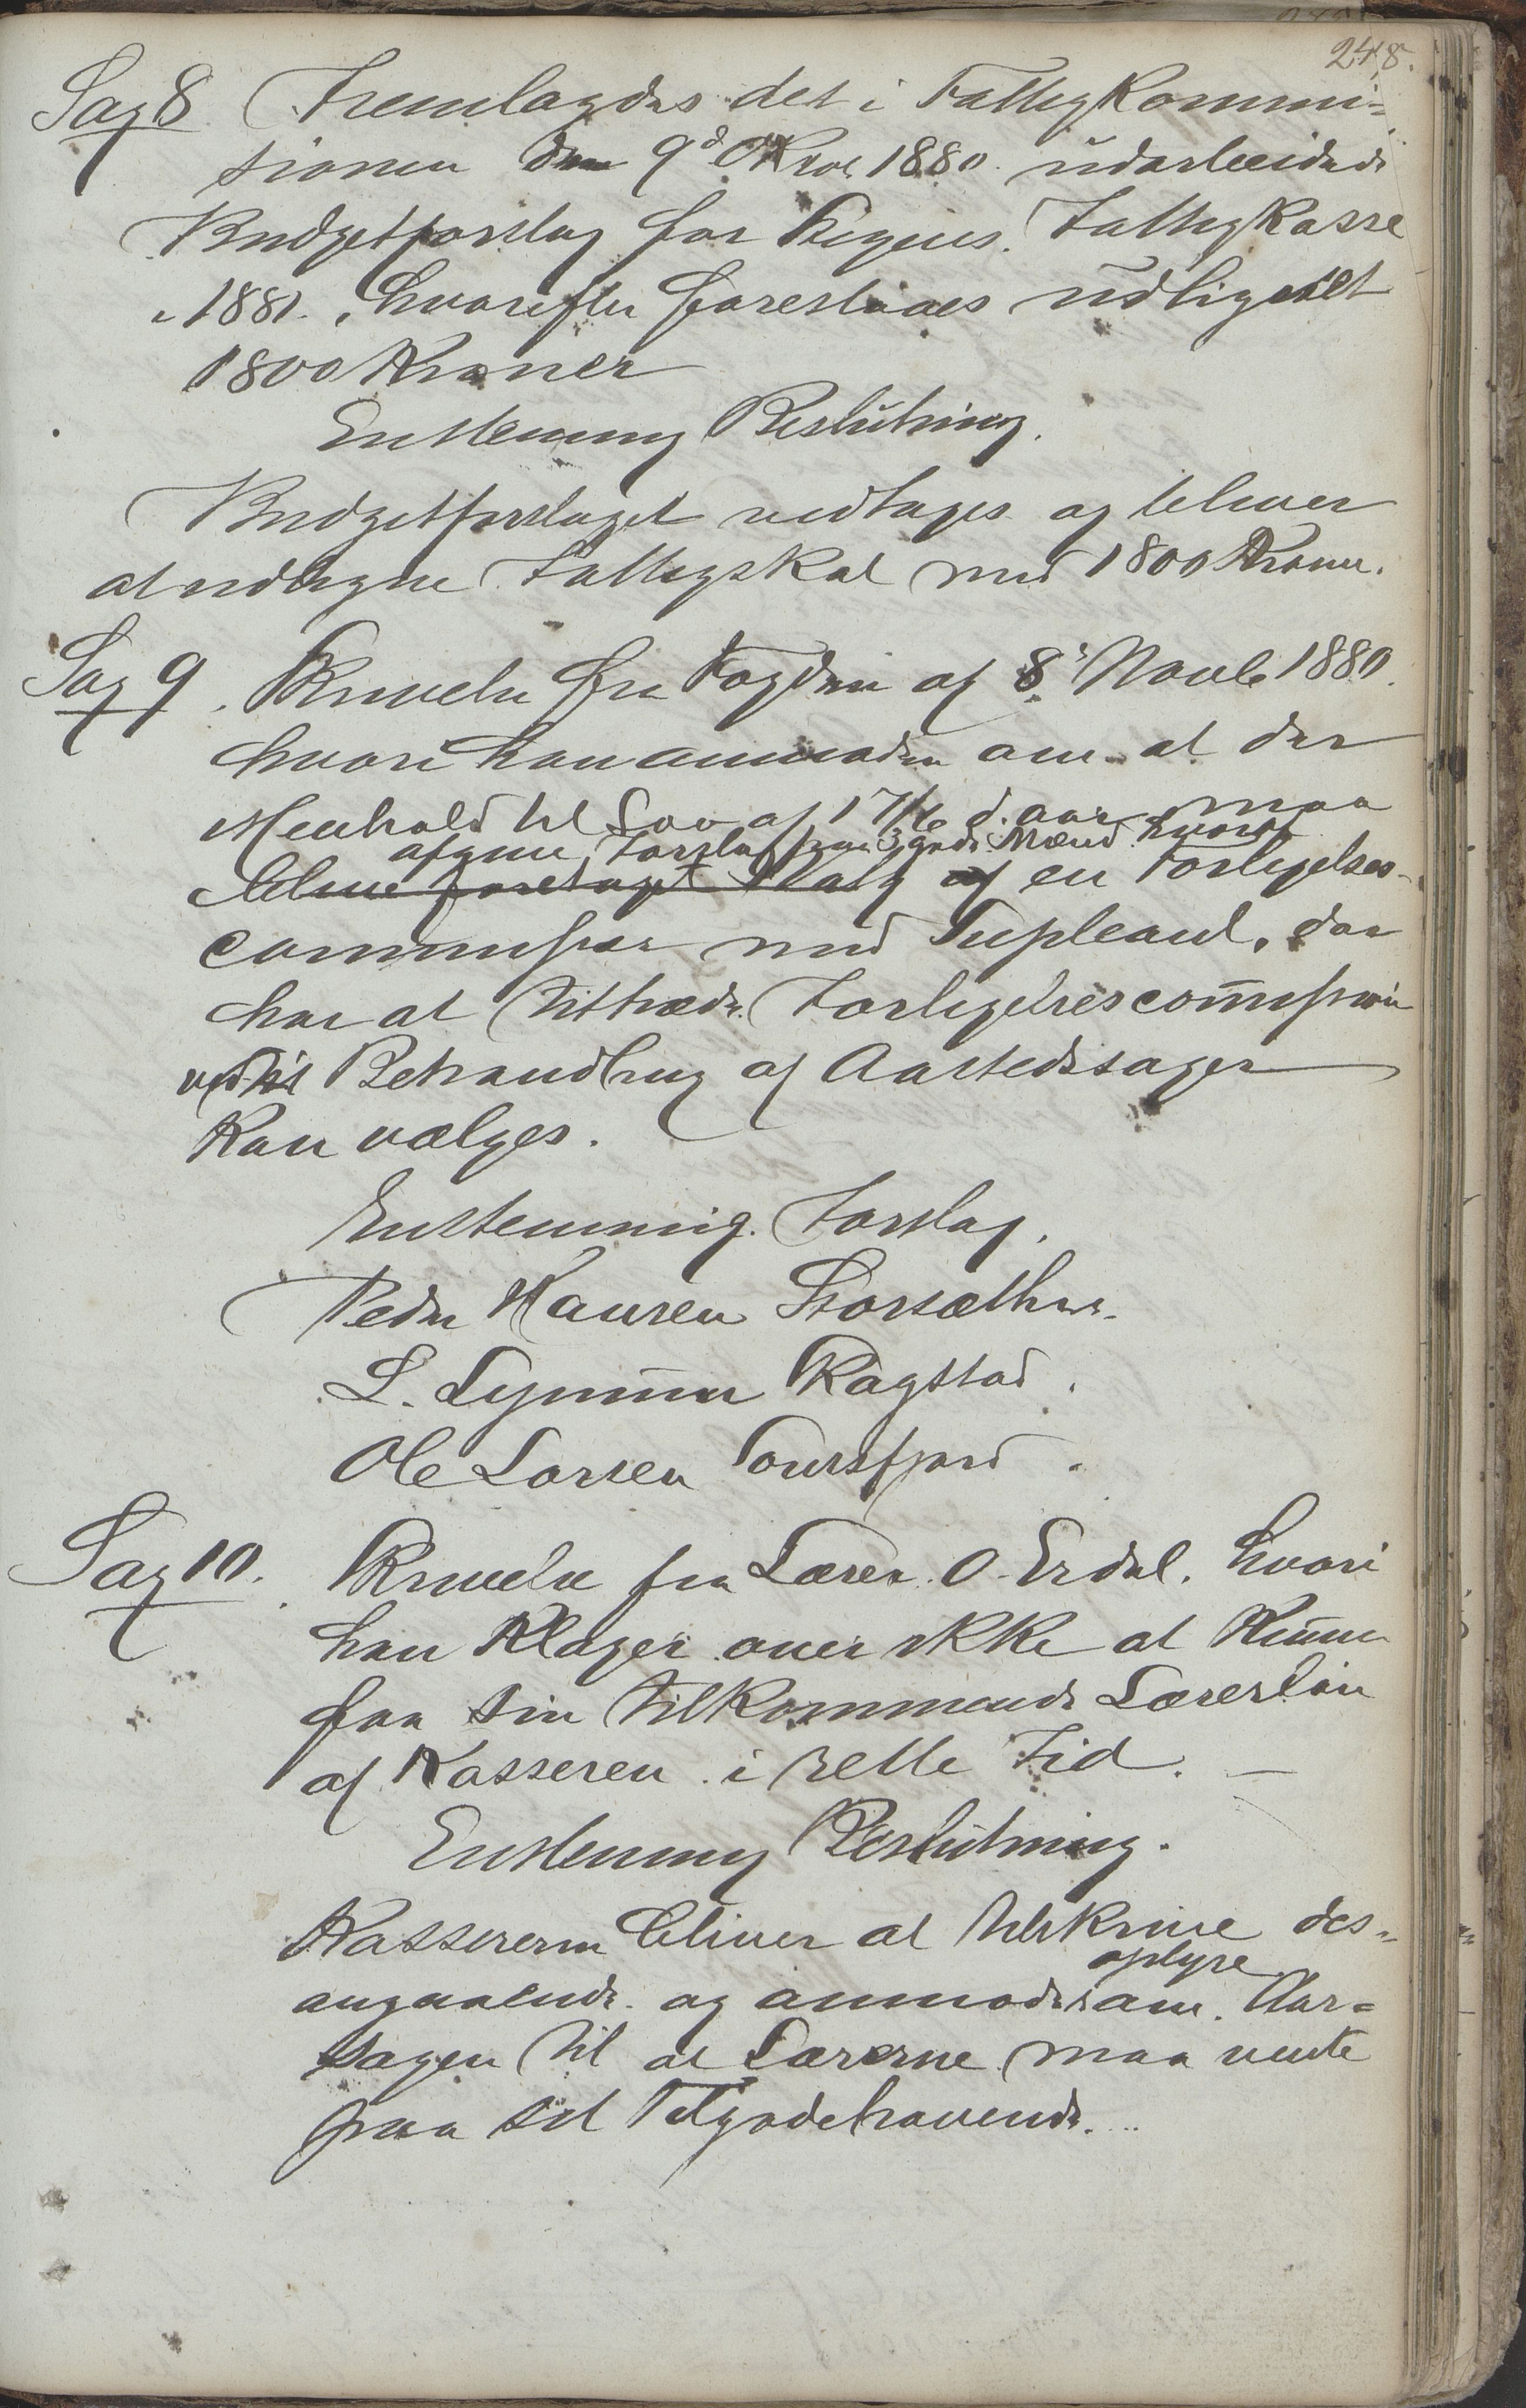 248.
Sag 8 Fremlagdes det i Fattigkommi-
sionen den 9d Oktob 1880 udarbeidede
Budgetforslag for Fattigkasse
1881. hvorefter foreslaaes udlignet
1800 Kroner
Enstemmig Beslutning.
Budgetforslaget vedtages og bliver
at udligne Fattigskat med 1800 Kroner.
Sag 9. Skrivelse fra Fogden af 8' Novb 1880.
hvori han anmoder om at der
i Henhold til Lov af 17/6 d. aar maa
afgive Forslag paa 3 gode Mænd hvoraf
blive foretaget Valg af en Forligelses-
commissær med Supleant, der
har at tiltræde Forligelsescommission
ved Behandling af Aastedssager
kan vælges.
Enstemmig Forslag.
Peder Hansen
L. Lymmer Rogstad.
Ole Larsen
Sag 10. Skrivelse fra Lærer O. Erdal. hvori
han klager over ikke at kunne
faa sin tilkommende Lærerløn
af Kasseren i rette Tid. –
Enstemmig Beslutning.
Kassereren bliver at tilskrive des-
angaaende og anmodes om oplyse Aar-
sagen til at Lærerne maa vente
paa sit Tilgodehavende.